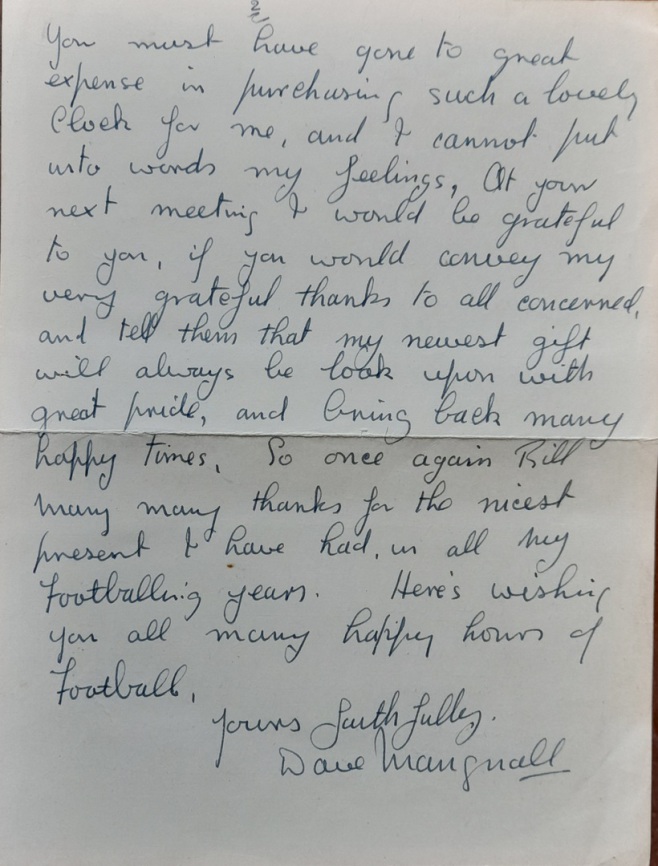 2
You must have gone to great
expense in purchasing such a lovely
Clock for me, and I cannot put
into words my feelings, At your
next meeting I would be grateful
to you, if you would convey my
very grateful thanks to all concerned,
and tell them that my newest gift
will always be look upon with
great pride, and bring back many
happy times. So once again Bill
many many thanks for the nicest
present I have had, in all my
Footballing years. Here's wishing
you all many happy hours of
Football,
Yours Faithfully.
Dave Mangnall